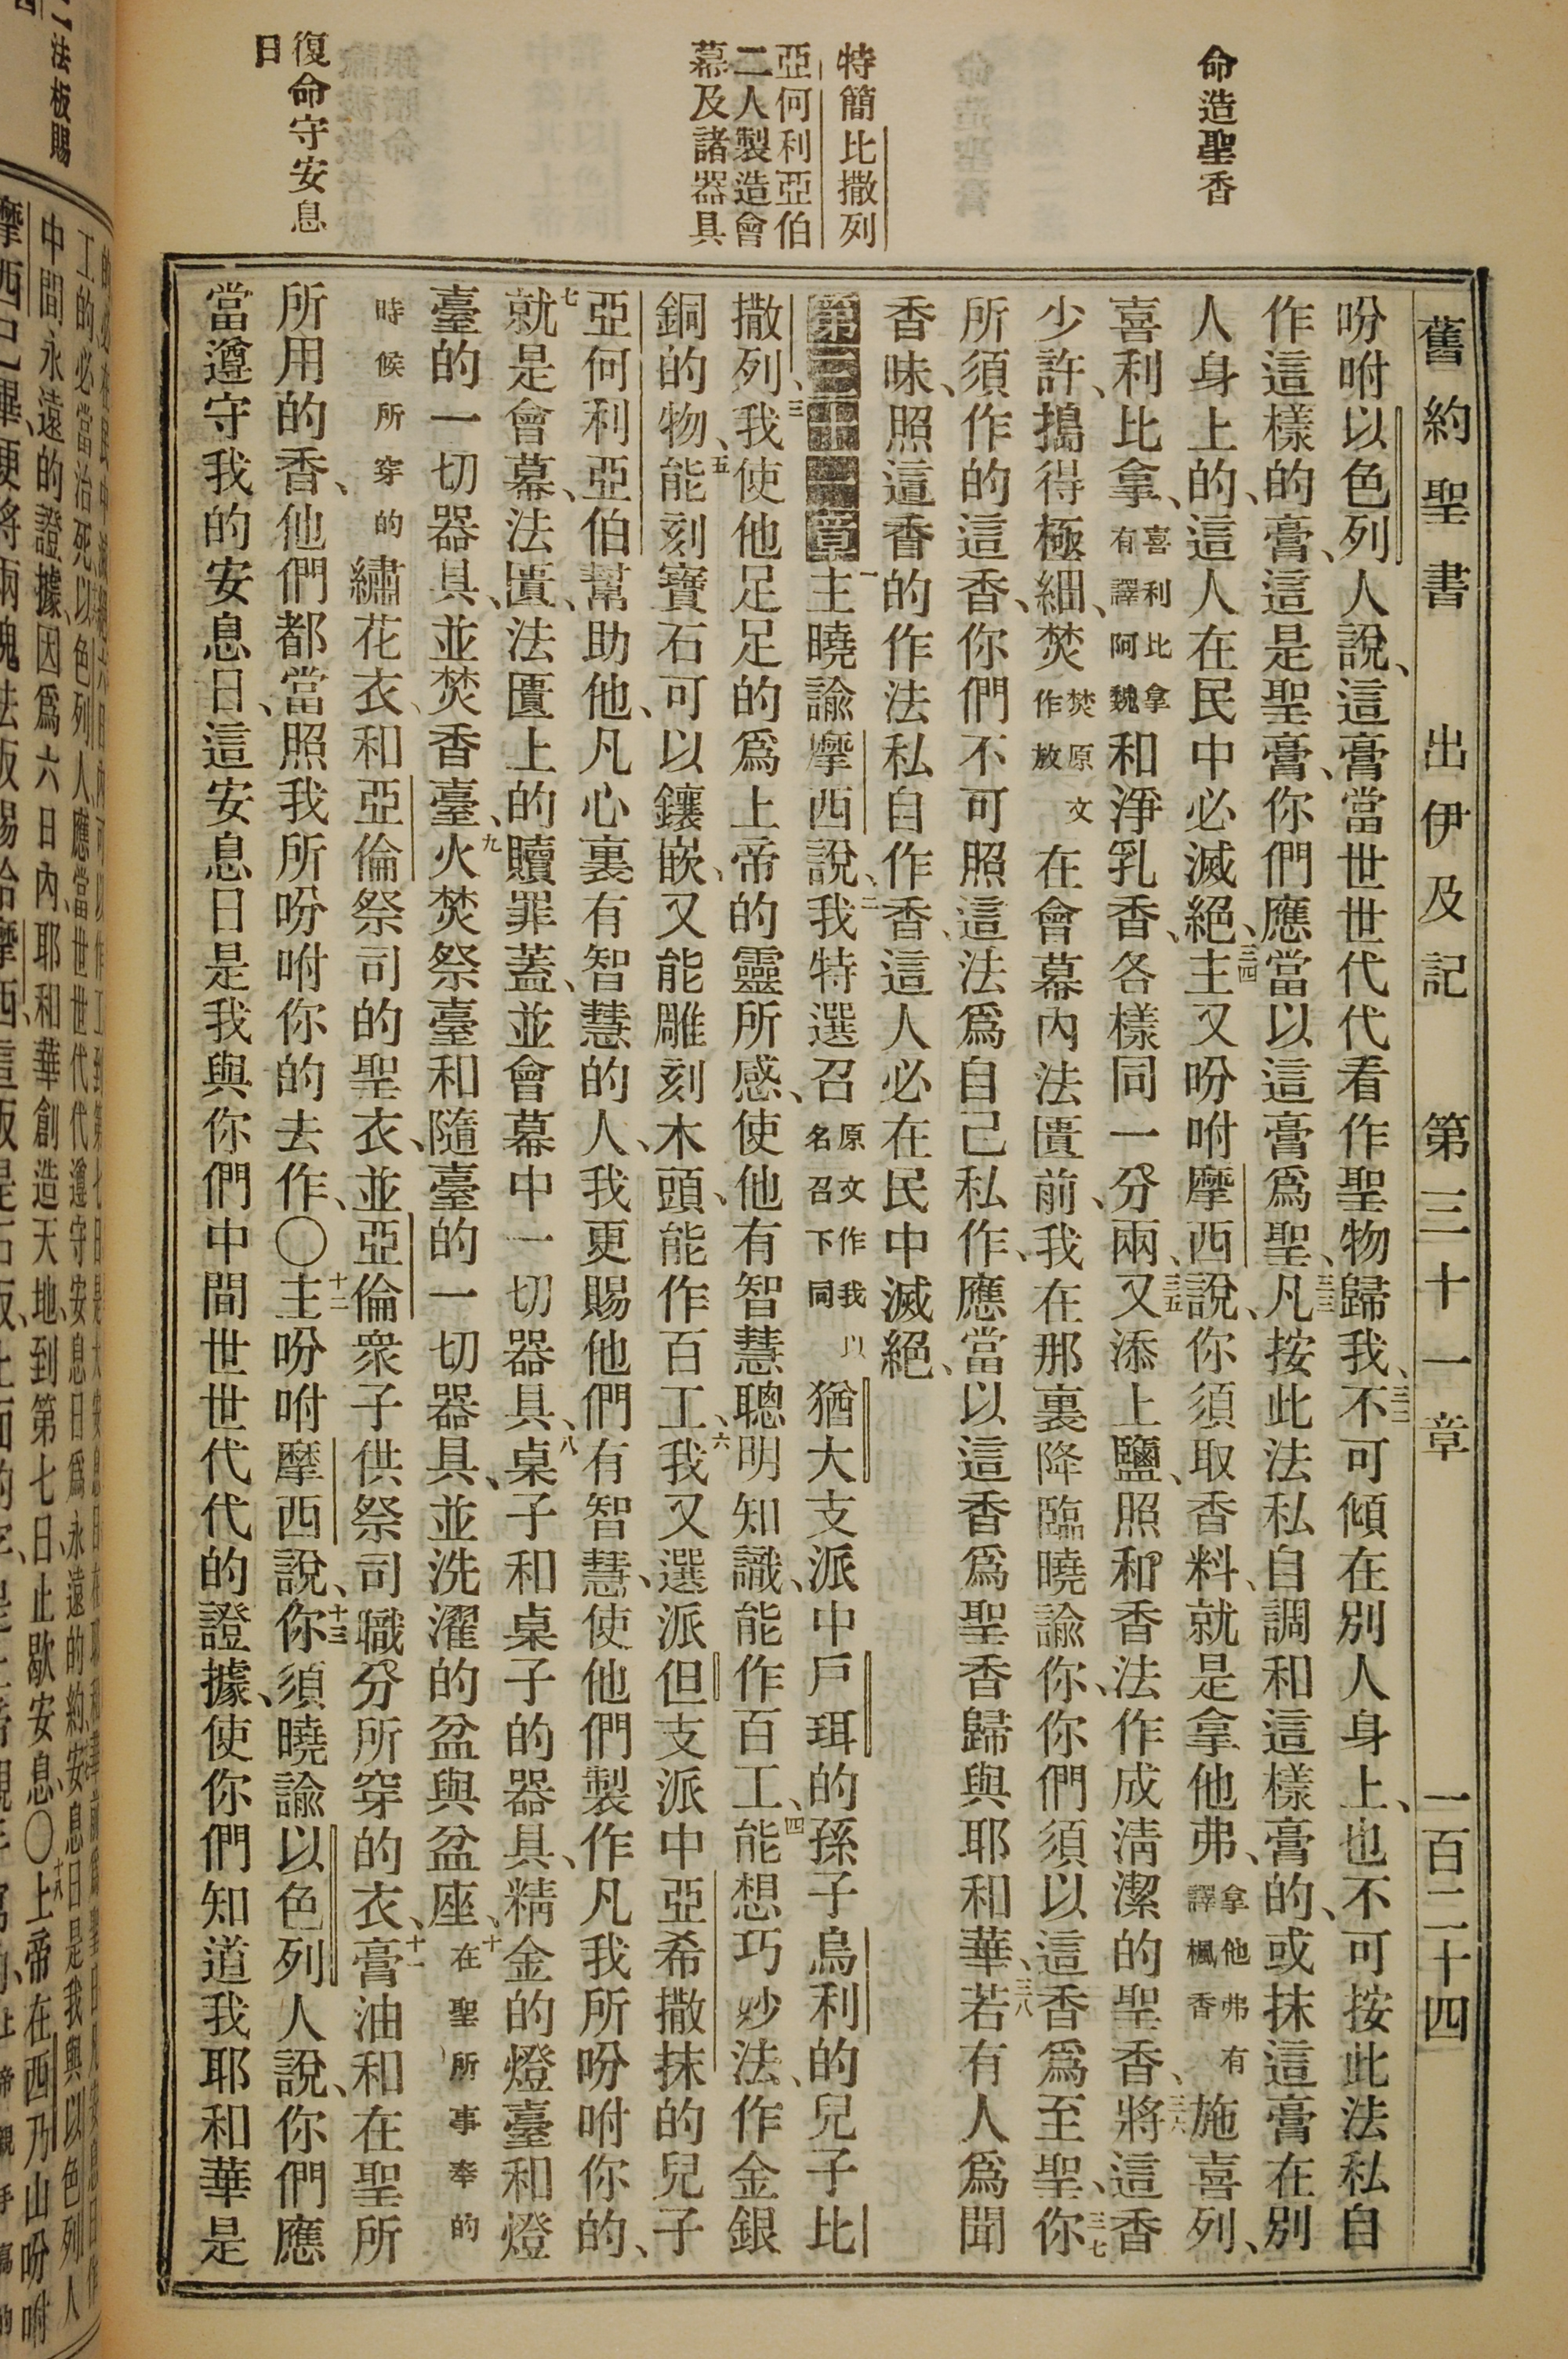 命造聖香
特簡比撒列
亞何利亞伯
二人製造會
幕及諸器具
復命守安息
日
舊約聖書 出伊及記 第三十一章 一百二十四
吩咐以色列人說、這膏當世世代代看作聖物歸我、三二不可傾在別人身上、也不可按此法私自
作這樣的膏、這是聖膏、你們應當以這膏爲聖、三三凡按此法私自調和這樣膏的、或抹這膏在別
人身上的、這人在民中必滅絕、三四主又吩咐摩西說、你須取香料、就是拿他弗、拿他弗有譯楓香施喜列、
喜利比拿、喜利比拿有譯阿魏和淨乳香、各樣同一分兩、三五又添上鹽、照和香法作成淸潔的聖香、三六將這香
少許、搗得極細、焚焚原文作放在會幕內法匱前、我在那裏降臨曉諭你、你們須以這香爲至聖、三七你
所須作的這香、你們不可照這法爲自己私作、應當以這香爲聖香歸與耶和華、三八若有人爲聞
香味、照這香的作法私自作香、這人必在民中滅絕、
第三十一章一主曉諭摩西說、二我特選召原文作我以名召下同猶大支派中戶珥的孫子烏利的兒子比
撒列、三我使他足足的爲上帝的靈所感、使他有智慧聰明知識、能作百工、四能想巧妙法、作金銀
銅的物、五能刻寶石可以鑲嵌、又能雕刻木頭、能作百工、六我又選派但支派中亞希撒抹的兒子
亞何利亞伯幫助他、凡心裏有智慧的人、我更賜他們有智慧、使他們製作凡我所吩咐你的、
七就是會幕、法匱、法匱上的贖罪蓋、並會幕中一切器具、八桌子和桌子的器具、精金的燈臺和燈
臺的一切器具、並焚香臺、九火焚祭臺和隨臺的一切器具、並洗濯的盆與盆座、十在聖所事奉的
時候所穿的繡花衣、和亞倫祭司的聖衣、並亞倫衆子供祭司職分所穿的衣、十一膏油和在聖所
所用的香、他們都當照我所吩咐你的去作、〇十二主吩咐摩西說、十三你須曉諭以色列人說、你們應
當遵守我的安息日、這安息日是我與你們中間世世代代的證據、使你們知道我耶和華是
中間永遠的證據、因爲六日內、耶和華創造天地、到第七日、此歇安息、〇十八上帝在西乃山吩咐